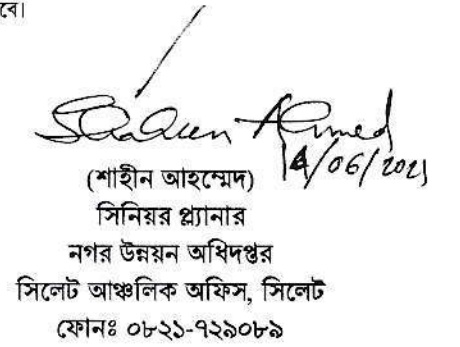 বে।
Shaheen Ahmed
14/06/2021
(শাহীন আহম্মেদ)
সিনিয়র প্ল্যানার
নগর উন্নয়ন অধিদপ্তর
সিলেট আঞ্চলিক অফিস, সিলেট
ফোনঃ ০৮২১-৭২৯০৮৯